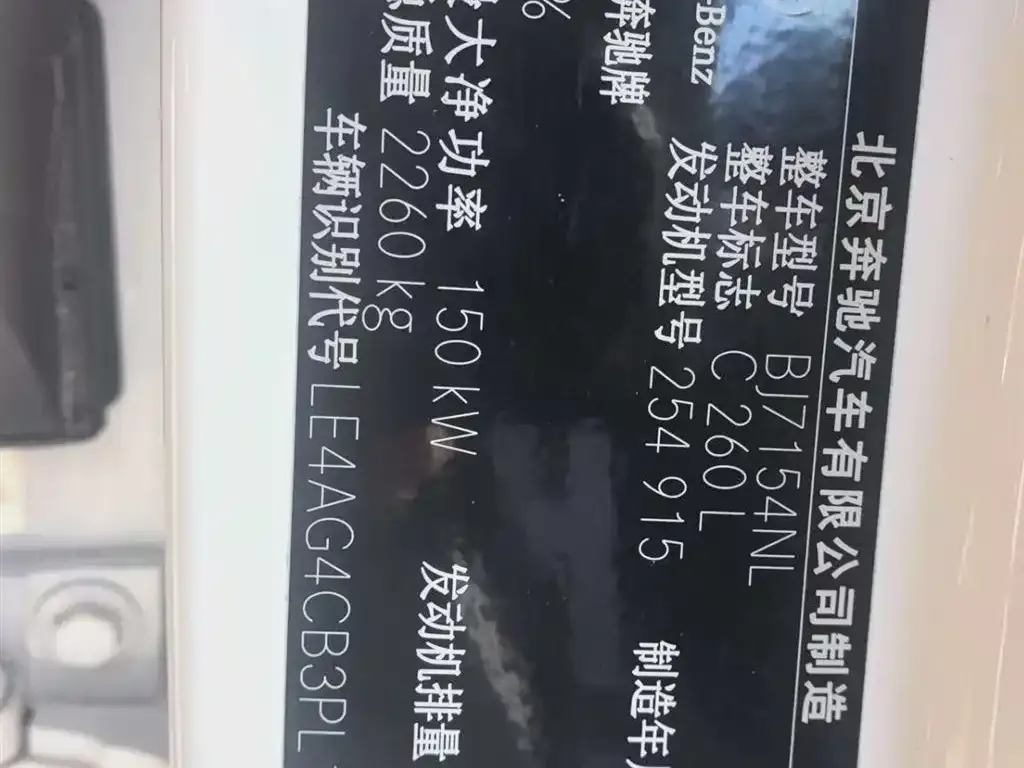 北京奔驰汽车有限公司制造
整车型号 BJ7154NL
整车标志 C 260 L
发动机型号 254 915
制造年
-Benz
奔驰牌
%
大净功率 150 kW
发动机排量
质量 2260 kg
车辆识别代号 LE4AG4CB3PL